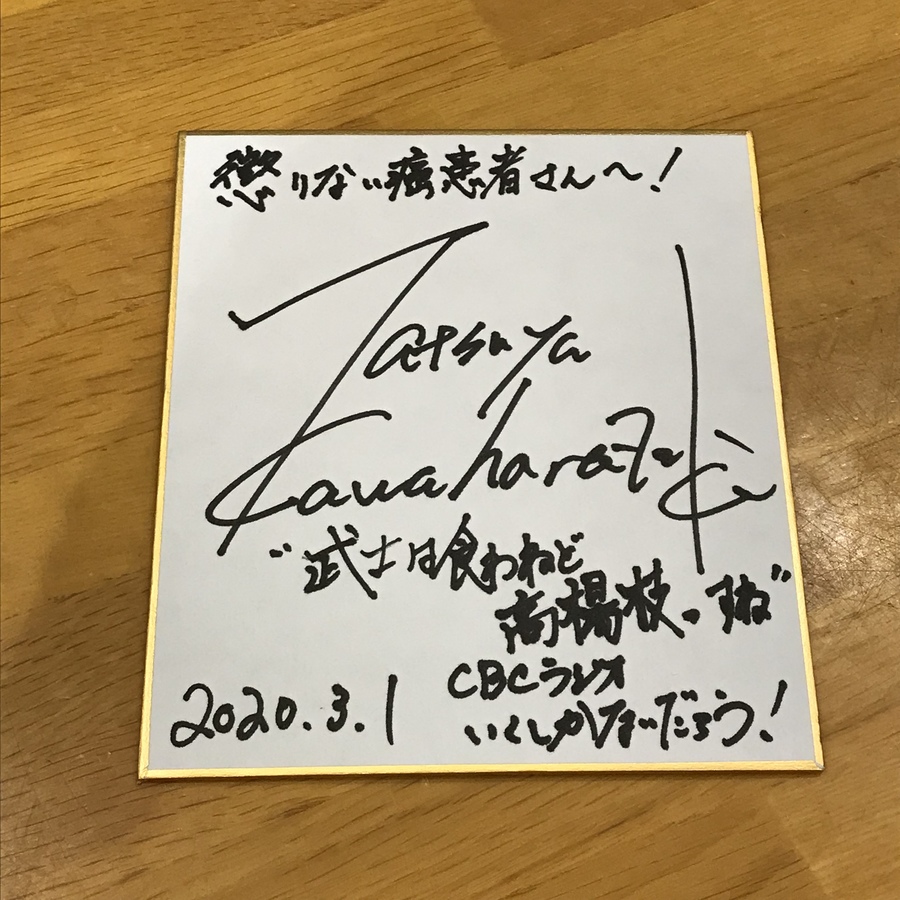 懲りない癌患者さんへ!
Tatsuya
Kawaharazuki
"武士は食わねど
高楊枝っすね"
CBCラジオ
いくしかないだろう!
2020.3.1